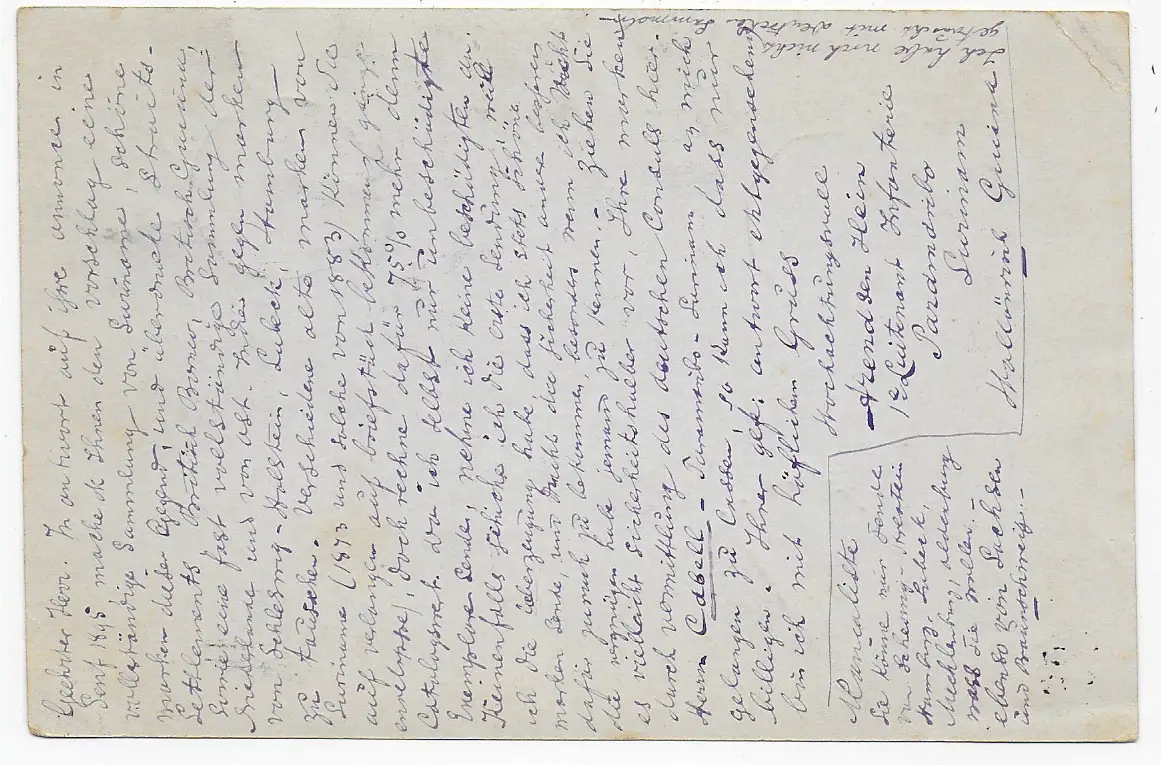 Geehrter Herr. In antwort auf Ihre annonce in
Senf 1895, mache ich Ihnen den vorschlag eine
vollständige Sammlung von Suriname, schöne
marken dieser Gegend, und überdrucke Straits-
Settlements, British Borneo, British Guiana,
sowie eine fast vollständige Sammlung der
Niederlanne und von Ost. Indië gegen marken
von Schleswig-Holstein, Lubeck, Hamburg
zu tauschen. Verschiedene alte marken von
Suriname (1873 und solche von 1883) können Sie
auf velangen auf briefstück bekommen (ganze
envelotte), doch rechne dafür 75% mehr denn
Catalogswert. Da ich selbst nur unbeschädigte
Exemplare sende, nehme ich keine beschädigten an.
Keinenfalls schicke ich die erste Sendung, weil
ich die überzeugung habe, dass ich stets schöne
marken sende, und auch die sicherheit andere besseren
dafür zurück zu bekommen, besonders wenn ich nicht
die vergnügen habe jemand zu kennen.- Ziehen Sie
es vielleicht sicherheitshalber vor, Ihre marken
durch vermittlung des deutschen Consuls hier.
Herrn Cabell - Paramaribo - Surinam an mich
gelangen zu lassen, so kann ich dass nur
billigen. Ihrer gef. antwort entgegensehend
bin ich mit höflichem Gruss
Hochachtungsvoll
Arend den Hein
1e Luitenant Infanterie
Paramaribo
Surinam
Holländisch Guiana
Mancoliste
Sie können mir sende
von Schleswig-Holstein
Hamburg, Lubeck,
Mecklenburg, oldenburg
was Sie wollen.-
ebenso von Sachsen
und Braunschweig.-
Ich habe noch nichts
getauscht mit deutsche Sammler.-